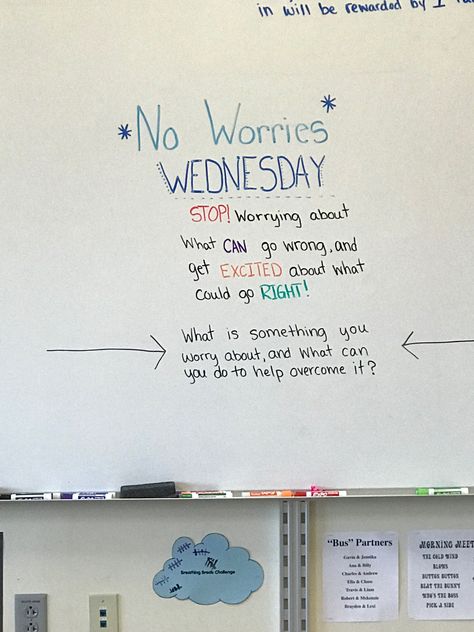 in will be rewarded by I
*No Worries*
WEDNESDAY
STOP! Worrying about
What CAN go wrong, and
get EXCITED about what
could go RIGHT!
What is something you
worry about, and what can
you do to help overcome it?
Breathing Brads Challenge
"Bus" Partners
Gavin & Jessika
Ana & Billy
Charles & Andrew
Ella & Chase
Travis & Liam
Robert & Mckenzie
Brayden & Lexi
MORNING MEET
THE COLD WIND
BLOWS
BUTTON BUTTON
BEAT THE BUNNY
WHO'S THE BOSS
PICK A SIDE